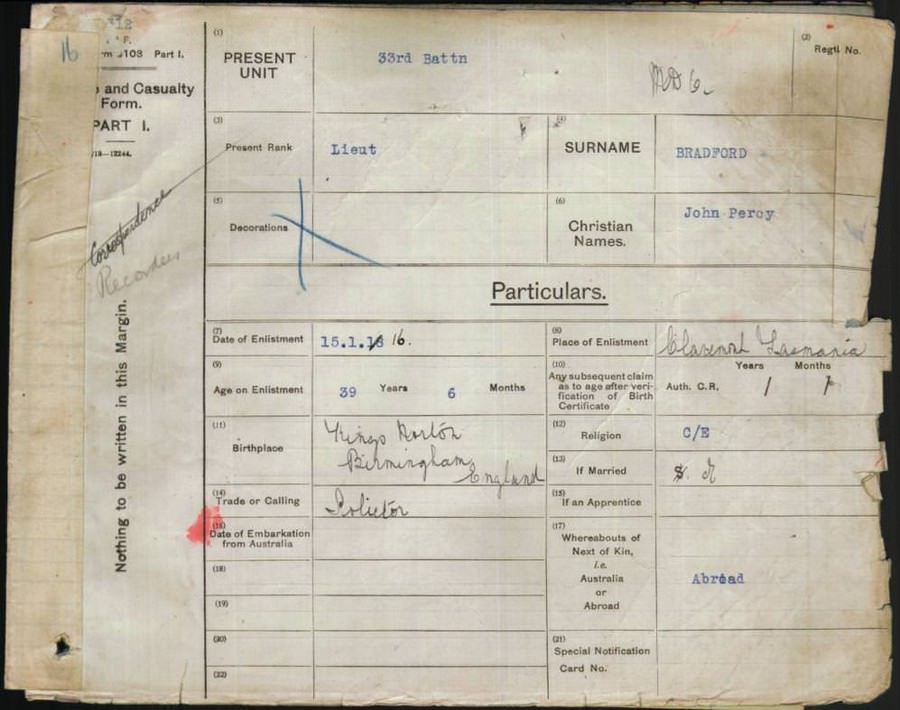 16
12
F.
103 Part I.
and Casualty
Form.
PART I.
/18—12244.
Correspondence
Recorders
Nothing to be written in this Margin.
(1)
PRESENT
UNIT
33rd Battn
MD 6.
(2)
Regtl No.
(3)
Present Rank
Lieut
(4)
SURNAME
BRADFORD
(5)
Decorations
(6)
Christian
Names.
John Percy
Particulars.
(7)
Date of Enlistment
15.1.16.
(8)
Place of Enlistment
Claremont Tasmania
(9)
Age on Enlistment
39 Years 6 Months
(10)
Any subsequent claim
as to age after veri-
fication of Birth
Certificate
Auth. C.R.
Years Months
/ /
(11)
Birthplace
Kings Norton
Birmingham
England
(12)
Religion
C/E
(13)
If Married
(14)
Trade or Calling
Solicitor
(15)
If an Apprentice
(16)
Date of Embarkation
from Australia
(17)
Whereabouts of
Next of Kin,
i.e.
Australia
or
Abroad
Abroad
(18)
(19)
(20)
(21)
Special Notification
Card No.
(22)